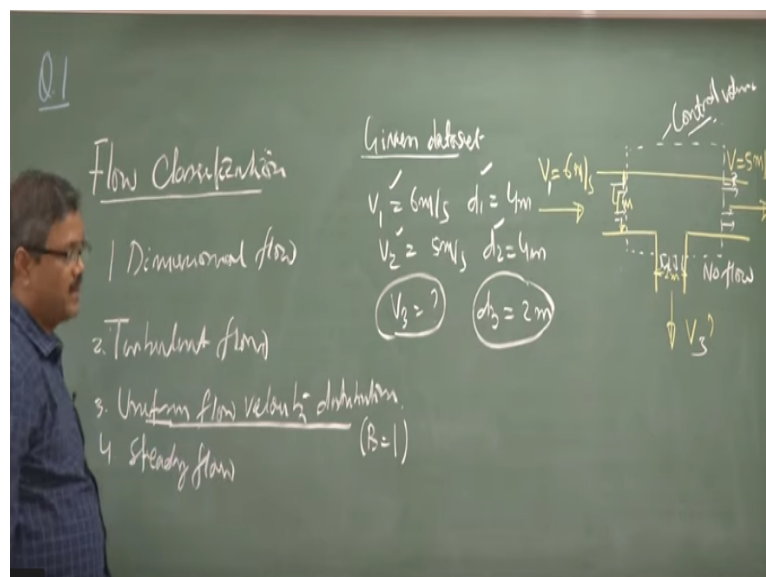 Q.1
Flow Classification
1 Dimensional flow
2. Turbulent flow
3. Uniform flow velocity distribution.
(B=1)
4 Steady flow
Given dataset
V₁ = 6m/s d₁ = 4m
V₂ = 5m/s d₂ = 4m
V₃ = ? d₃ = 2m
Control volume
V₁=6m/s
V=5m/
4m
2m
No flow
V₃?